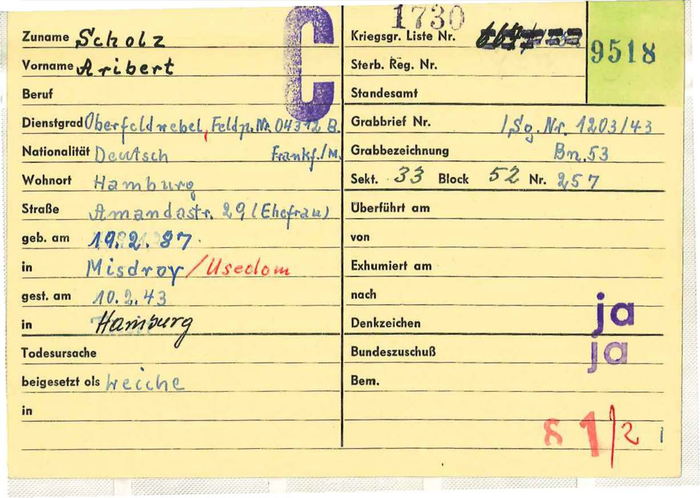 Zuname Scholz
Vorname Aribert
Beruf
Dienstgrad Oberfeldwebel, Feldp. Nr. 04312 B.
Nationalität Deutsch Frankf./M.
Wohnort Hamburg
Straße Amandastr. 29 (Ehefrau)
geb. am 19.2.87.
in Misdroy/Usedom
gest. am 10.2.43
in Hamburg
Todesursache
beigesetzt als Leiche
in
C
1730
Kriegsgr. Liste Nr.
9518
Sterb. Reg. Nr.
Standesamt
Grabbrief Nr. 1203/43
Grabbezeichnung Bn. 53
Sekt. 33 Block 52 Nr. 257
Überführt am
von
Exhumiert am
nach
Denkzeichen ja
Bundeszuschuß ja
Bem.
8 1/2